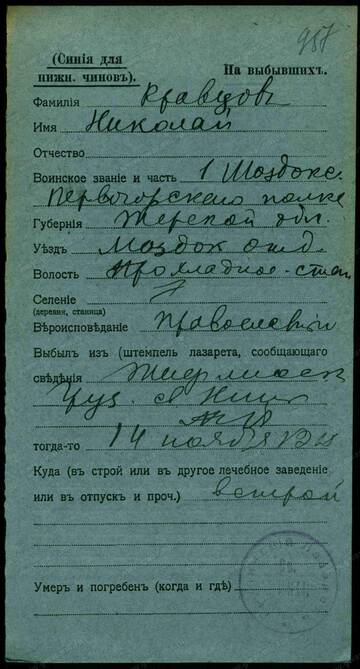 957
(Синія для
нижн. чиновъ).
На выбывшихъ.
Фамилія Кравцовъ
Имя Николай
Отчество
Воинское званіе и часть 1 Моздокс.
полка
Губернія Терской обл.
Уѣздъ Моздок отд.
Волость Прохладное - стан
Селеніе
(деревня, станица)
Вѣроисповѣданіе Православный
Выбылъ изъ (штемпель лазарета, сообщающаго
свѣдѣнія
тогда-то 14 ноября
Куда (въ строй или въ другое лечебное заведеніе
или въ отпускъ и проч.) в строй
Умеръ и погребенъ (когда и гдѣ)